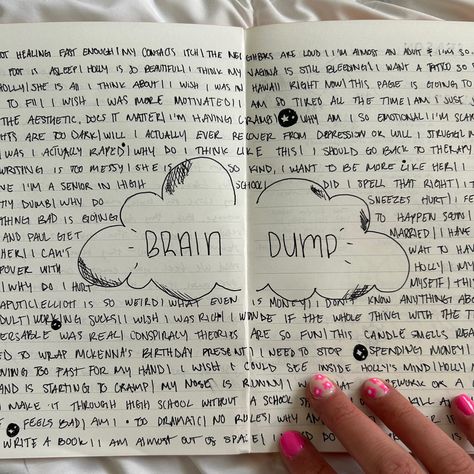 OT HEALING FAST ENOUGH | MY CONTACTS ITCH | THE NEIGHBORS ARE LOUD | I'M ALMOST AN ADULT IF I'M SO
FOOT IS ASLEEP | HOLLY IS SO BEAUTIFUL | I THINK MY VAGINA IS STILL BLEEDING | I WANT A TATTOO SO
HOLLY | SHE IS ALL I THINK ABOUT | I WISH I WAS IN HAWAII RIGHT NOW | THIS PAGE IS GOING TO
TO FILL | I WISH I WAS MORE MOTIVATED | I AM SO TIRED ALL THE TIME | AM I JUST
THE AESTHETIC, DOES IT MATTER | I'M HAVING CRAMPS WHY AM I SO EMOTIONAL | I'M SCA
HTS ARE TOO DARK | WILL I ACTUALLY EVER RECOVER FROM DEPRESSION OR WILL I STRUGGL
I WAS I ACTUALLY RAPED | WHY DO I THINK LIKE THIS | I SHOULD GO BACK TO THERAPY
WRITING IS TOO MESSY | SHE IS SO KIND, I WANT TO BE MORE LIKE HER | I
VE I'M A SENIOR IN HIGH SCHOOL | DID I SPELL THAT RIGHT |
TTY DUMB | WHY DO SNEEZES HURT | I FE
THING BAD IS GOING TO HAPPEN SOO
AND PAUL GET MARRIED | I HAVE
HER | I CAN'T WAIT TO HAV
POWER WITH HOLLY | MY
| WHY DO I HURT MYSELF | THI
APUTIC | ELLIOTT IS SO WEIRD | WHAT EVEN IS MONEY | I DON'T KNOW ANYTHING ABO
DULT | WORKING SUCKS | I WISH I WAS RICH | I WONDER IF THE WHOLE THING WITH THE T
ERSABLE WAS REAL | CONSPIRACY THEORIES ARE SO FUN | THIS CANDLE SMELLS REA
ED TO WRAP MCKENNA'S BIRTHDAY PRESENT | I NEED TO STOP SPENDING MONEY |
VING TOO FAST FOR MY HAND | I WISH I COULD SEE INSIDE HOLLY'S MIND | HOLLY M
AND IS STARTING TO CRAMP | MY NOSE IS RUNNY | WHAT THE WORK OR A
I MAKE IT THROUGH HIGH SCHOOL WITHOUT A SCHOOL KILL A
FEELS BAD | AM I TOO DRAMATIC | NO RULES | WHY AM
WRITE A BOOK | I AM ALMOST OUT OF SPACE | I DO
BRAIN DUMP